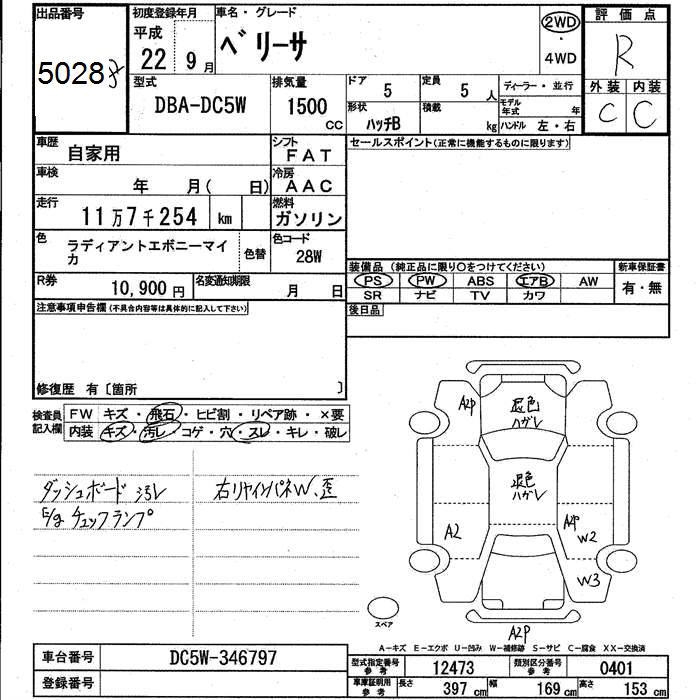 出品番号
5028
初度登録年月
平成
22 9月
車名・グレード
ベリーサ
2WD
・
4WD
評価点
R
外装 内装
C C
型式
DBA-DC5W
排気量
1500
CC
ドア
5
定員
5 人
ディーラー・並行
モデル年式 年
形状
ハッチB
積載
kg
ハンドル 左・右
車歴
自家用
シフト
FAT
セールスポイント(正常に機能するものに限ります)
車検
年 月( 日)
冷房
AAC
走行
11万7千254 km
燃料
ガソリン
色
ラディアントエボニーマイ
カ
色替
色コード
28W
装備品 (純正品に限り〇をつけてください)
新車保証書
PS PW ABS エアB AW
SR ナビ TV カワ
有・無
R券
10,900 円
名変通知期限
月 日
後日品
注意事項申告欄(不具合内容等は具体的に記入して下さい)
修復歴 有〔箇所 〕
検査員
記入欄
FW キズ・飛石・ヒビ割・リペア跡・×要
内装 キズ・汚レ・コゲ・穴・スレ・キレ・破レ
ダッシュボード汚レ
E/g チェックランプ
右リヤインパネW、歪
A2P
退色
ハガレ
退色
ハガレ
A2
A2P
W2
W3
A2P
スペア
A-キズ E-エクボ U-凹み W-補修跡 S-サビ C-腐食 XX-交換済
車台番号
DC5W-346797
登録番号
型式指定番号
参考
12473
類別区分番号
参考
0401
車庫証明用
参考
長さ
397 cm
幅
169 cm
高さ
153 cm